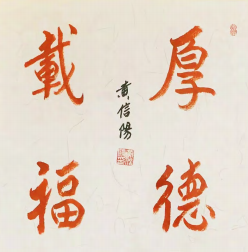 厚德
載福
黄信陽